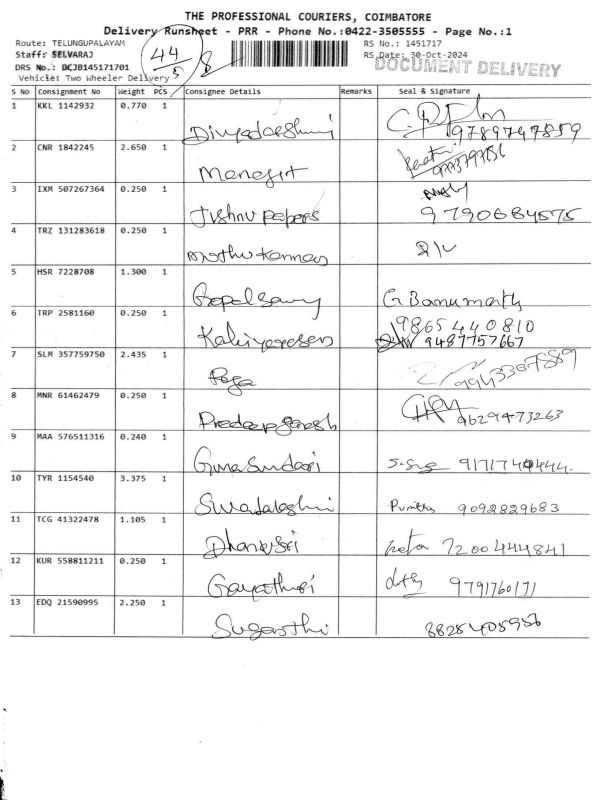 THE PROFESSIONAL COURIERS, COIMBATORE
Delivery Runsheet - PRR - Phone No.:0422-3505555 - Page No.:1
Route: TELUNGUPALAYAM
RS No.: 1451717
Staff: SELVARAJ
RS Date: 30-Oct-2024
DRS No.: DCJB145171701
DOCUMENT DELIVERY
Vehicle: Two Wheeler Delivery
44
5
8
S No Consignment No Weight PCS Consignee Details Remarks Seal & Signature
1 KKL 1142932 0.770 1 Divyadarshini 9789747859
2 CNR 1842245 2.650 1
3 IXM 507267364 0.250 1 Jishnu papers 9790684575
4 TRZ 131283618 0.250 1 muthu kannan
5 HSR 7228708 1.300 1 Gopalsamy G Banumathy
9865440810
6 TRP 2581160 0.250 1 9487757667
7 SLM 357759750 2.435 1 9943387889
8 MNR 61462479 0.250 1 Pradeep ganesh 9629473263
9 MAA 576511316 0.240 1 Guna Sundari 9171740444.
10 TYR 1154540 3.375 1 9092829683
11 TCG 41322478 1.105 1 Dhanusri 7200444841
12 KUR 558811211 0.250 1 Gayathiri 9791760171
13 EDQ 21590995 2.250 1 Suganthi 8825405956